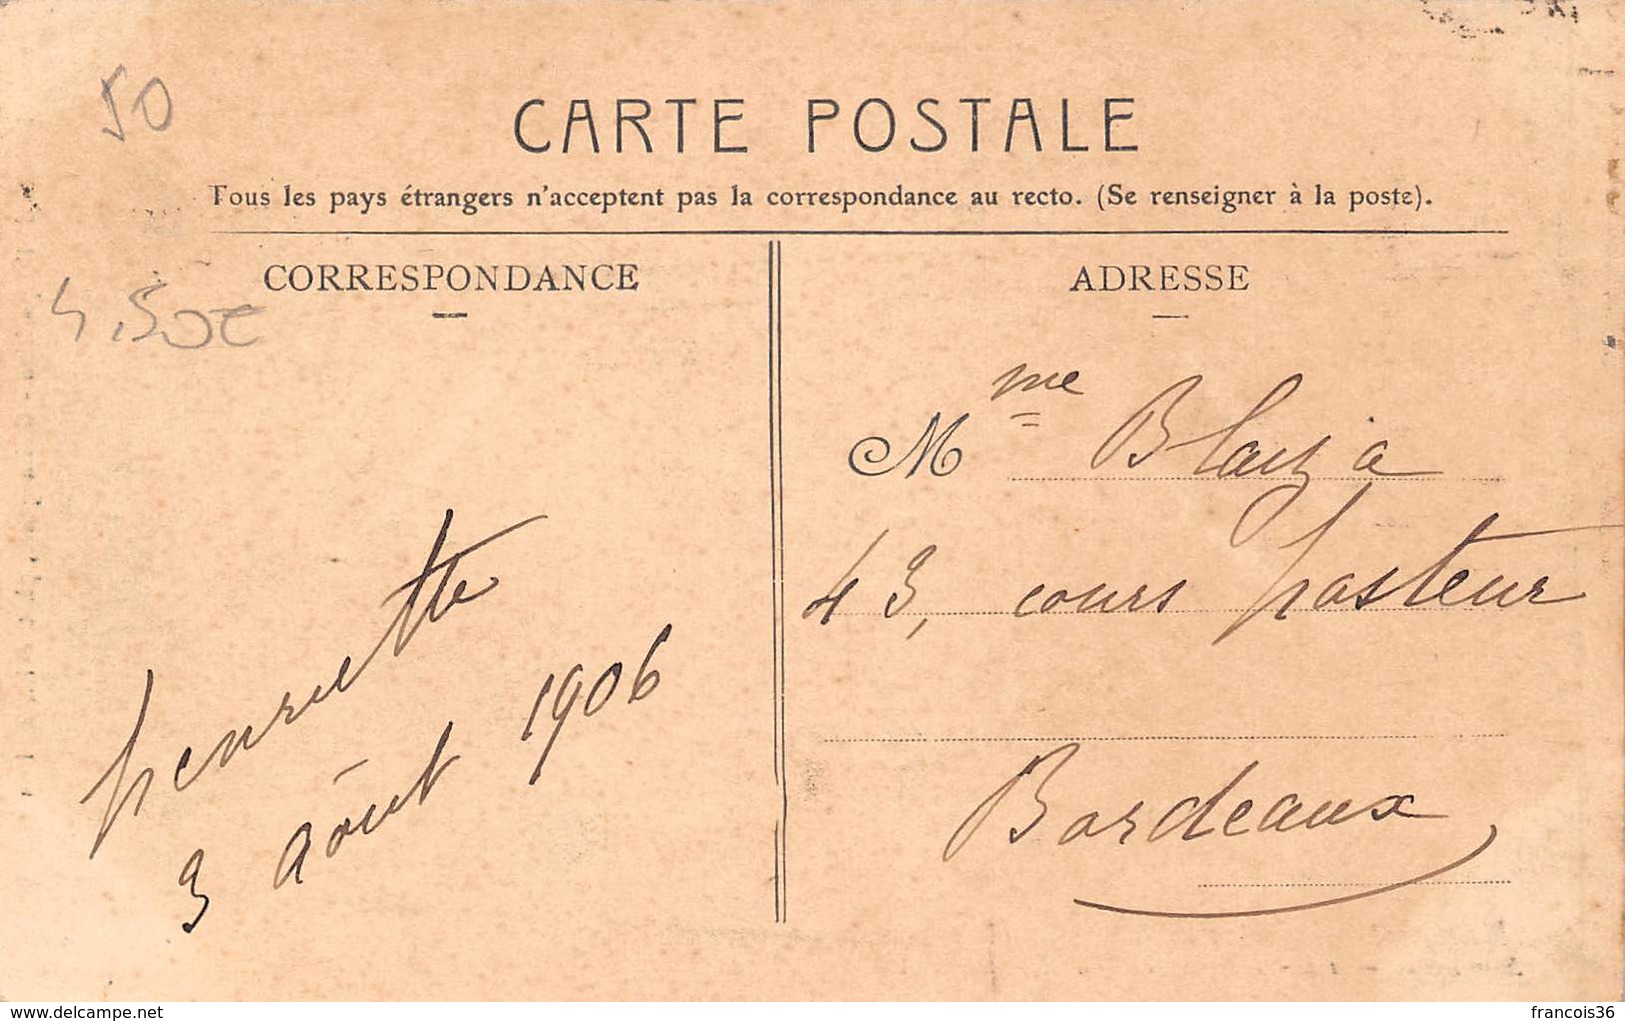 50
CARTE POSTALE
Tous les pays étrangers n'acceptent pas la correspondance au recto. (Se renseigner à la poste).
CORRESPONDANCE
4,50€
henriette
3 août 1906
ADRESSE
Mme
43, cours pasteur
Bordeaux
delcampe.net
francois36